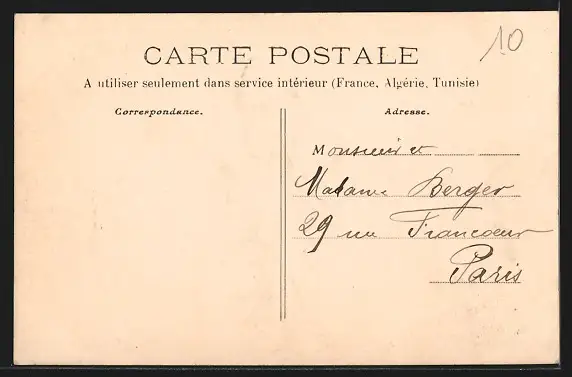 10
CARTE POSTALE
A utiliser seulement dans service intérieur (France, Algérie, Tunisie)
Correspondance.
Adresse.
Monsieur et
Madame Berger
29 rue Francoeur
Paris